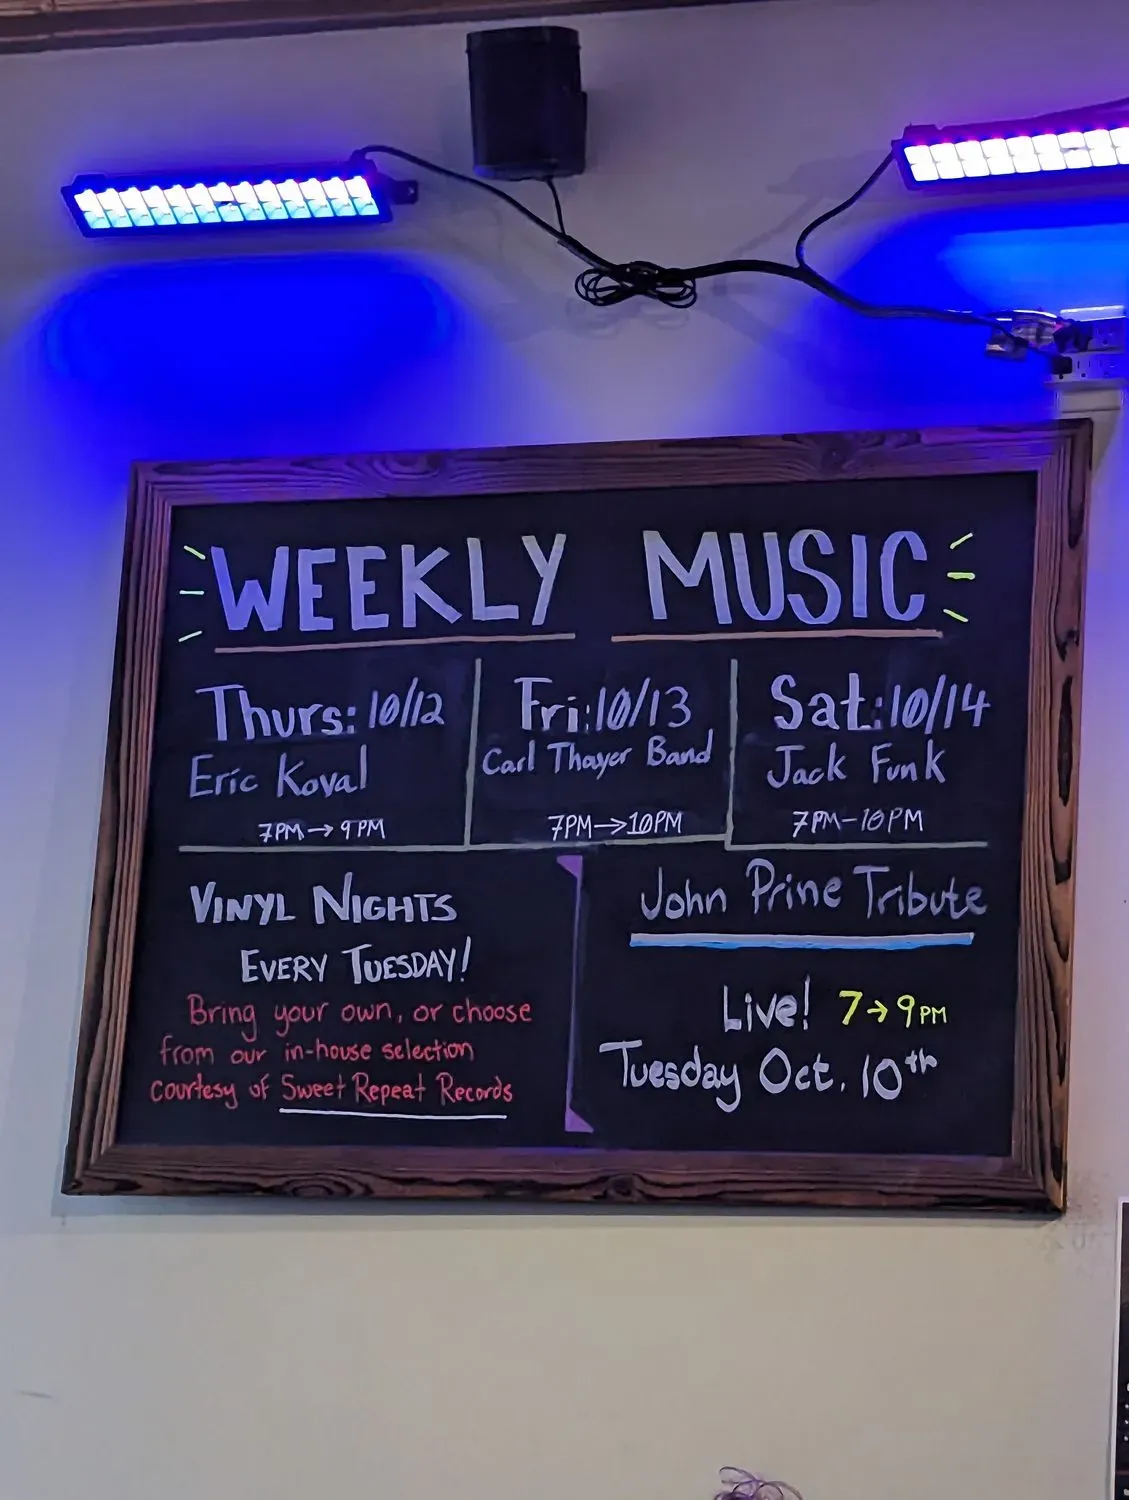 WEEKLY MUSIC
Thurs: 10/12
Eric Koval
7PM → 9PM
Fri: 10/13
Carl Thayer Band
7PM → 10PM
Sat: 10/14
Jack Funk
7PM - 10PM
VINYL NIGHTS
EVERY TUESDAY!
Bring your own, or choose
from our in-house selection
courtesy of Sweet Repeat Records
John Prine Tribute
Live! 7 → 9PM
Tuesday Oct. 10th